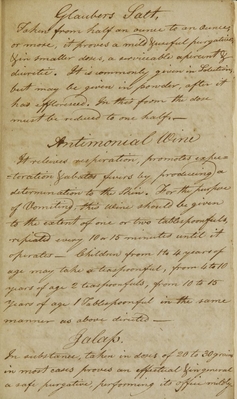 Glaubers Salt,
Taken from half an ounce to an ounce,
or more, it proves a mild & useful purgative
& in smaller doses, a serviceable aperient &
diuretic. It is commonly given in Solution,
but may be given in powder, after it
has effloresced. In this form the dose
must be reduced to one half.—
Antimonial Wine
It relieves respiration, promotes expec-
toration & abates fevers by producing a
determination to the Skin. For the purpose
of Vomiting this Wine should be given
to the extent of one or two tablespoonfuls,
repeated every 10 a 15 minutes until it
operates— Children from 1 to 4 years of
age may take a teaspoonful, from 4 to 10
years of age 2 teaspoonfuls, from 10 to 15
Years of age 1 Tablespoonful in the same
manner as above directed—
Jalap.
In substance, taken in doses of 20 to 30 grains
in most cases proves an effectual & in general
a safe purgative, performing its office mildly